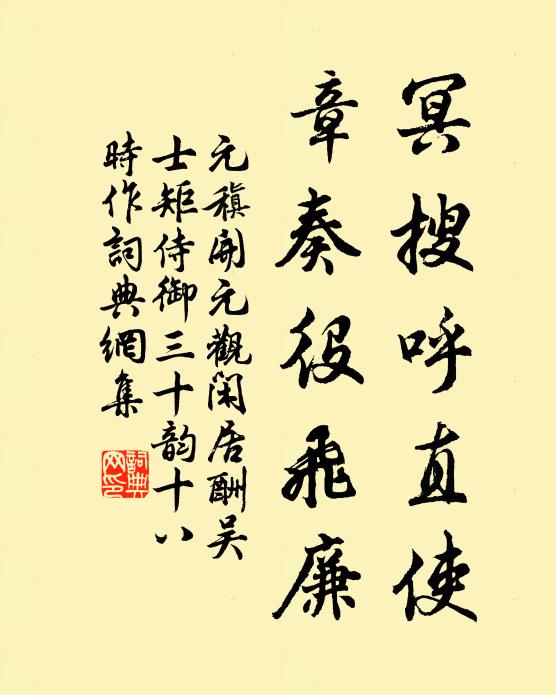 冥搜呼直使
章奏役飛廉
元稹開元觀閑居酬吳
士矩侍御三十韵十八
時作詞典網集
詞典網印